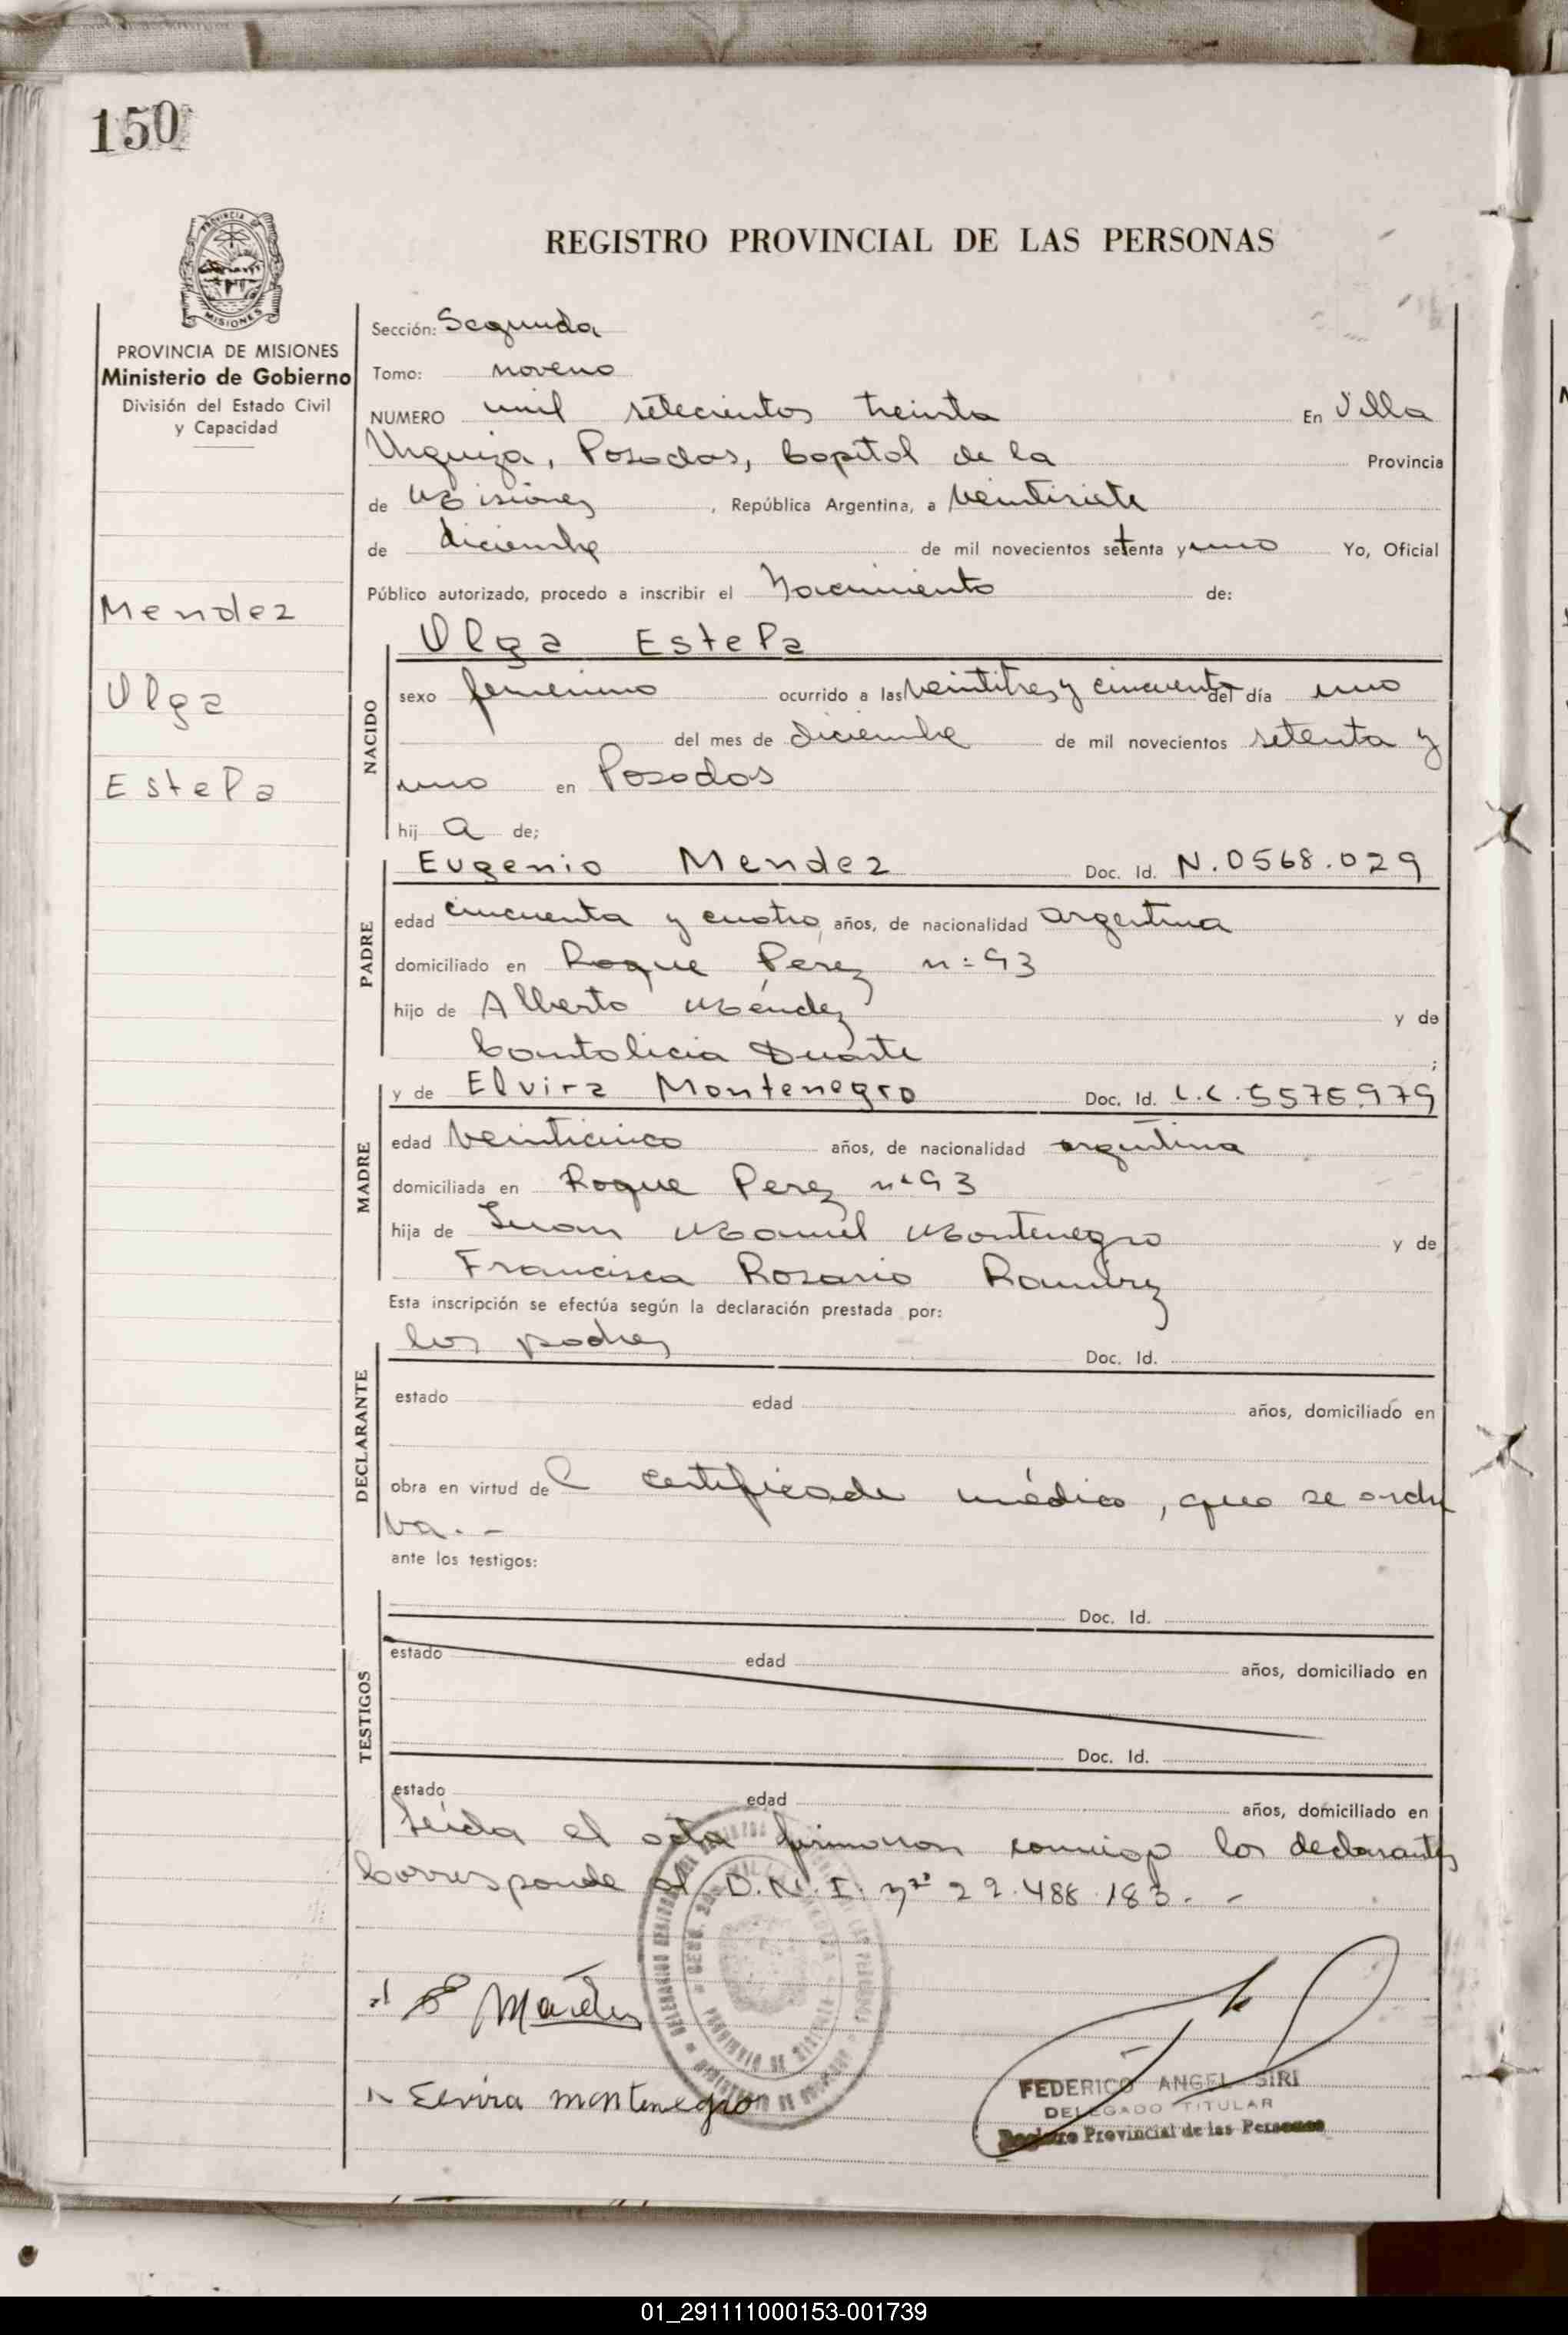 150
REGISTRO PROVINCIAL DE LAS PERSONAS
PROVINCIA DE MISIONES
Ministerio de Gobierno
División del Estado Civil
y Capacidad
Mendez
Olga
Estela
Sección: Segunda
Tomo: noveno
NUMERO mil setecientos treinta En Villa
Urquiza, Posadas, Capital de la Provincia
de Misiones, República Argentina, a veintisiete
de diciembre de mil novecientos setenta y uno Yo, Oficial
Público autorizado, procedo a inscribir el Nacimiento de:
Olga Estela
NACIDO
sexo femenino ocurrido a las veintitres y cincuenta del día uno
del mes de diciembre de mil novecientos setenta y
uno en Posadas
hij a de;
PADRE
Eugenio Mendez Doc. Id. N.0568.029
edad cincuenta y cuatro años, de nacionalidad argentina
domiciliado en Roque Perez n=93
hijo de Alberto Méndez y de
Duarte ;
MADRE
y de Elvira Montenegro Doc. Id. L.C.5575979
edad veinticinco años, de nacionalidad argentina
domiciliada en Roque Perez nº93
hija de Juan Manuel Montenegro y de
Francisca Rosario Ramirez
Esta inscripción se efectúa según la declaración prestada por:
DECLARANTE
los padres Doc. Id.
estado edad años, domiciliado en
obra en virtud de l certificado médico, que se archi
va.-
ante los testigos:
TESTIGOS
Doc. Id.
estado edad años, domiciliado en
Doc. Id.
estado edad años, domiciliado en
Leída el acta firmaron conmigo los declarantes
Corresponde al D.N.I. nº 22.488.183.-
E Mendez
Elvira montenegro
FEDERICO ANGEL SIRI
DELEGADO TITULAR
Registro Provincial de las Personas
01_291111000153-001739